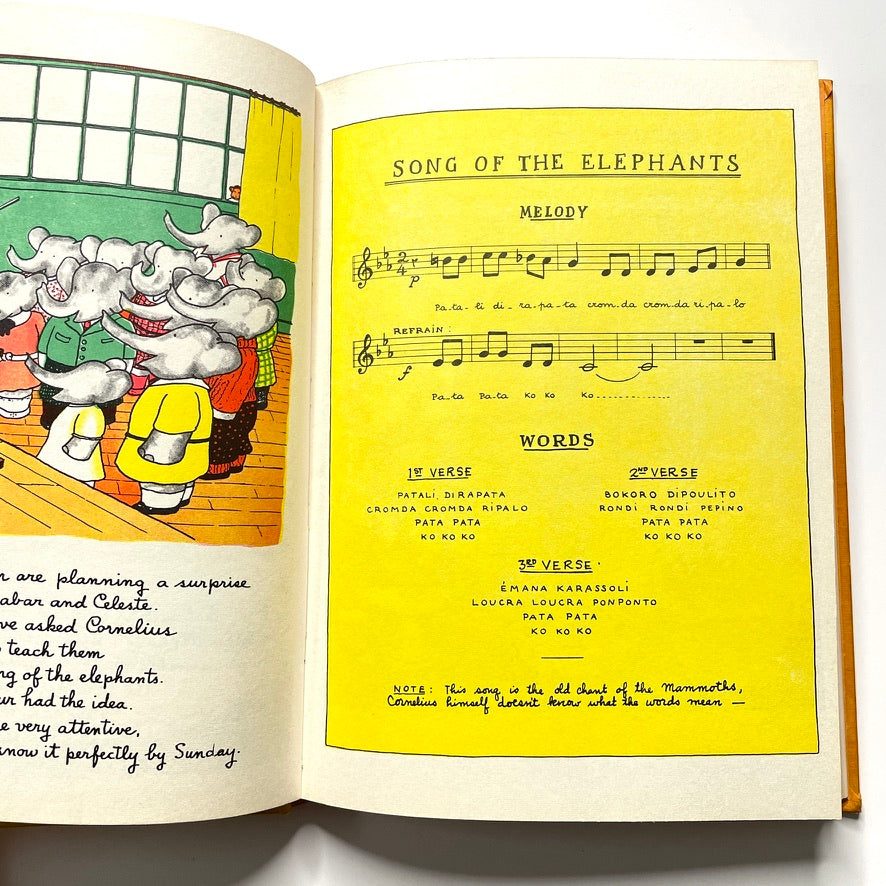 n are planning a surprise
abar and Celeste.
ve asked Cornelius
teach them
ng of the elephants.
ur had the idea.
e very attentive,
know it perfectly by Sunday.
SONG OF THE ELEPHANTS
MELODY
2
4
p
Pa-ta-li di-ra-pa-ta crom.da crom.da ri.pa-lo
REFRAIN:
f
Pa-ta Pa-ta KO KO KO
WORDS
1ST VERSE
PATALI, DIRAPATA
CROMDA CROMDA RIPALO
PATA PATA
KO KO KO
2ND VERSE
BOKORO DIPOULITO
RONDI RONDI PEPINO
PATA PATA
KO KO KO
3RD VERSE
ÉMANA KARASSOLI
LOUCRA LOUCRA PONPONTO
PATA PATA
KO KO KO
NOTE: This song is the old chant of the Mammoths,
Cornelius himself doesn't know what the words mean —